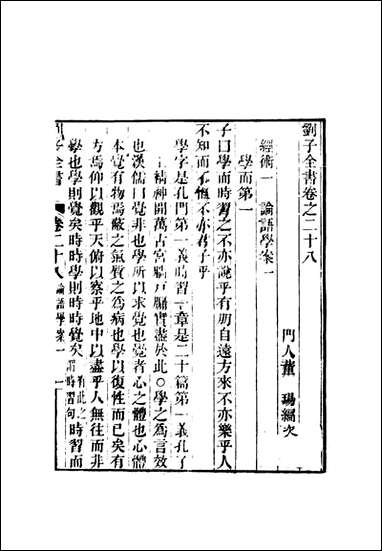 劉子全書卷之二十八
門人董 瑒編次
經術一 論語學案一
學而第一
子曰學而時習之不亦說乎有朋自遠方來不亦樂乎人
不知而不慍不亦君子乎
學字是孔門第一義時習一章是二十篇第一義孔子
一生精神開萬古宮牆戶牖實盡於此○學之爲言效
也漢儒曰覺非也學所以求覺也覺者心之體也心體
本覺有物焉蔽之氣質之爲病也學以復性而已矣有
方焉仰以觀乎天俯以察乎地中以盡乎人無往而非
學也學則覺矣時時學則時時覺矣 有此之謂時習句 時習而
劉子全書 卷二十八 論語學案一 一